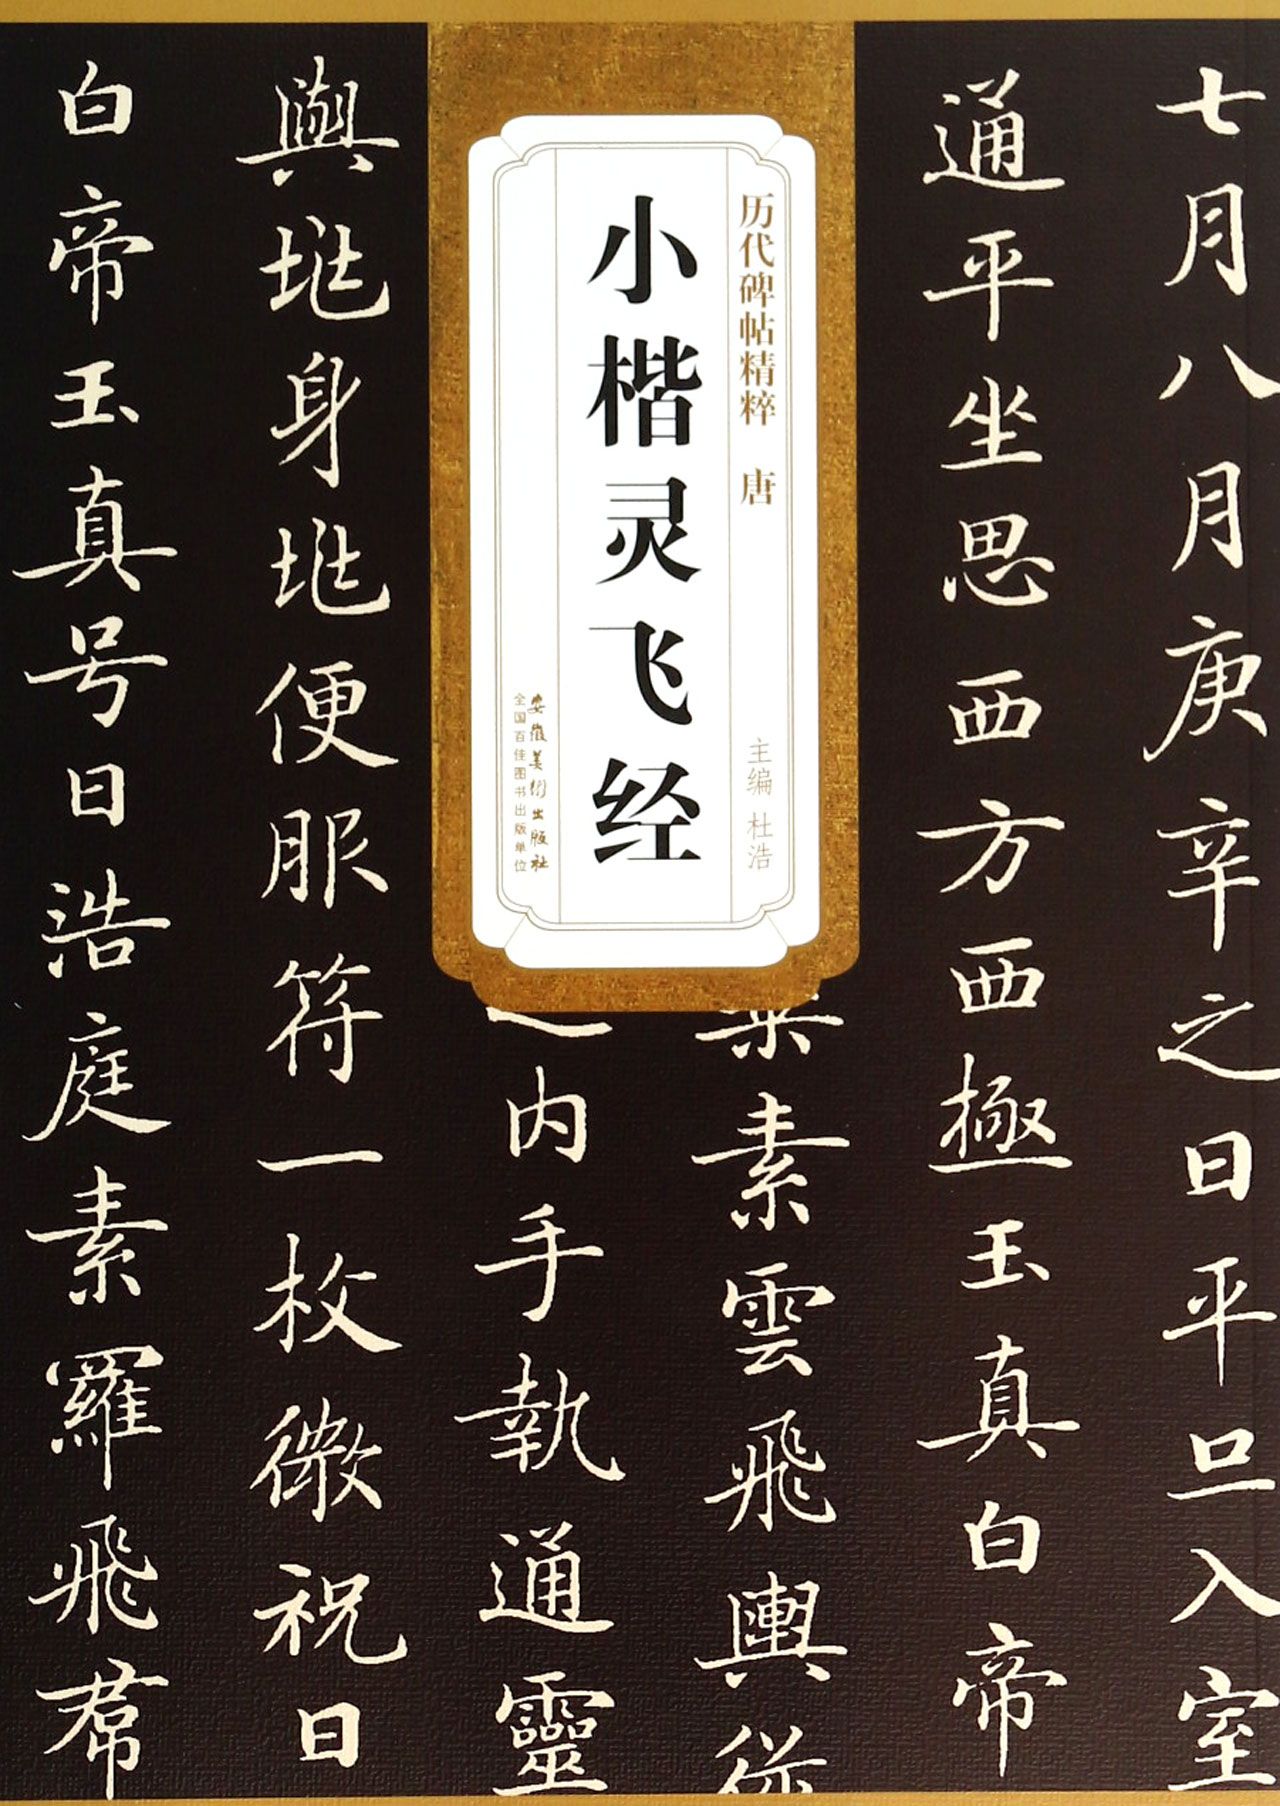 七月八月庚辛之日平旦入室
通平坐思西方西極玉真白帝
素雲飛輿從
历代碑帖精粹 唐
主编 杜浩
小楷灵飞经
安徽美术出版社
全国百佳图书出版单位
内手執通靈
與兆身兆便服符一枚微祝曰
白帝玉真号曰浩庭素羅飛帬